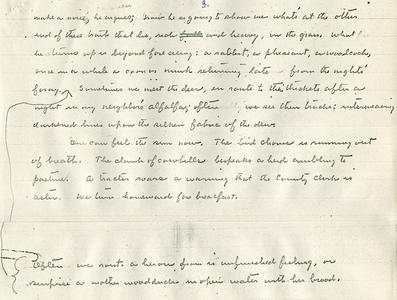 3.
make a noise, he urges; now he is going to show us what's at the other
end of these trails that lie, red and heavy, in the grass. What
he turns up is beyond foreseeing: a rabbit, a pheasant, a woodcock,
once in a while a coon or mink returning late from the nights'
foray. Sometimes we meet the deer, en route to the thickets after a
night in my neighbor's alfalfa; often we see their tracks: interweaving
darkened lines upon the silken fabric of the dew.
One can feel the sun now. The bird chorus is running out
of breath. The clank of cowbells bespeaks a herd ambling to
pasture. A tractor roars a warning that the County Clerk is
astir. We turn homeward for breakfast.
Often we rout a heron from his unfinished fishing, or
surprise a mother woodduck in open water with her brood.